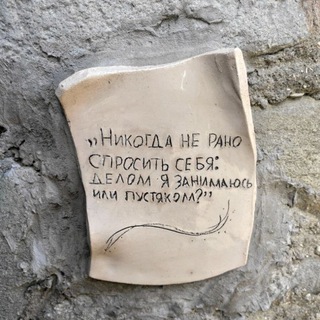 „Никогда не рано
спросить себя:
делом я занимаюсь
или пустяком?”